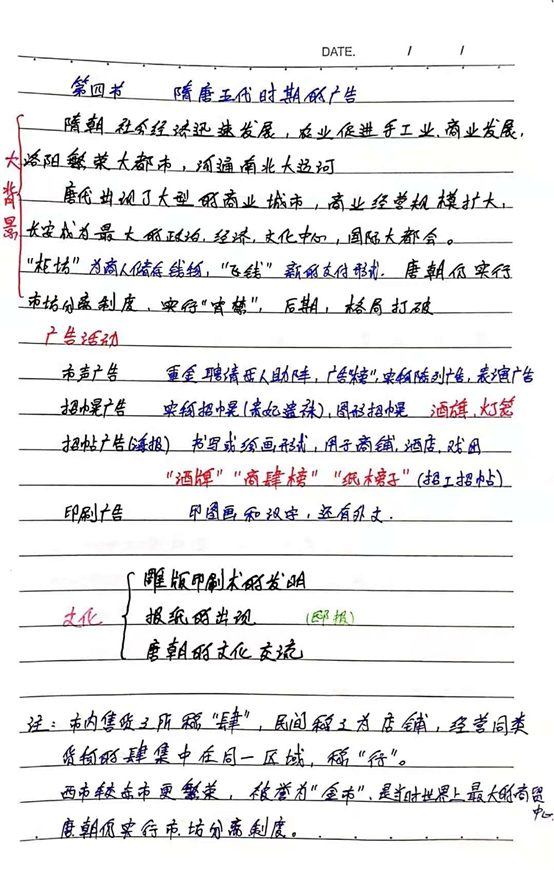 DATE. / /
第四节 隋唐五代时期的广告
隋朝社会经济迅速发展，农业促进手工业、商业发展，
洛阳繁荣大都市，河通南北大运河
唐代出现了大型的商业城市，商业经营规模扩大，
长安成为最大的政治、经济、文化中心，国际大都会。
"柜坊"为商人储存钱物，"飞钱"新的支付形式．唐朝仍实行
市坊分离制度，实行"宵禁"，后期，格局打破
大背景
广告活动
市声广告 重金聘请 人助阵，广告 ，实物陈列广告，表演广告
招幌广告 实物招幌(贵妃 )，图形招幌 酒旗，灯笼
招帖广告(海报) 书写或绘画形式，用于商铺，酒店，戏园
"酒牌" "商肆榜" "纸榜子"(招工招帖)
印刷广告 印图画和汉字，还有外文．
文化
雕版印刷术的发明
报纸的出现 (邸报)
唐朝的文化交流
注：市内售货之所称"肆"，民间称之为店铺，经营同类
货物的肆集中在同一区域，称"行"。
西市较东市更繁荣，被誉为"金市"，是当时世界上最大的商贸中心.
唐朝仍实行市坊分离制度。